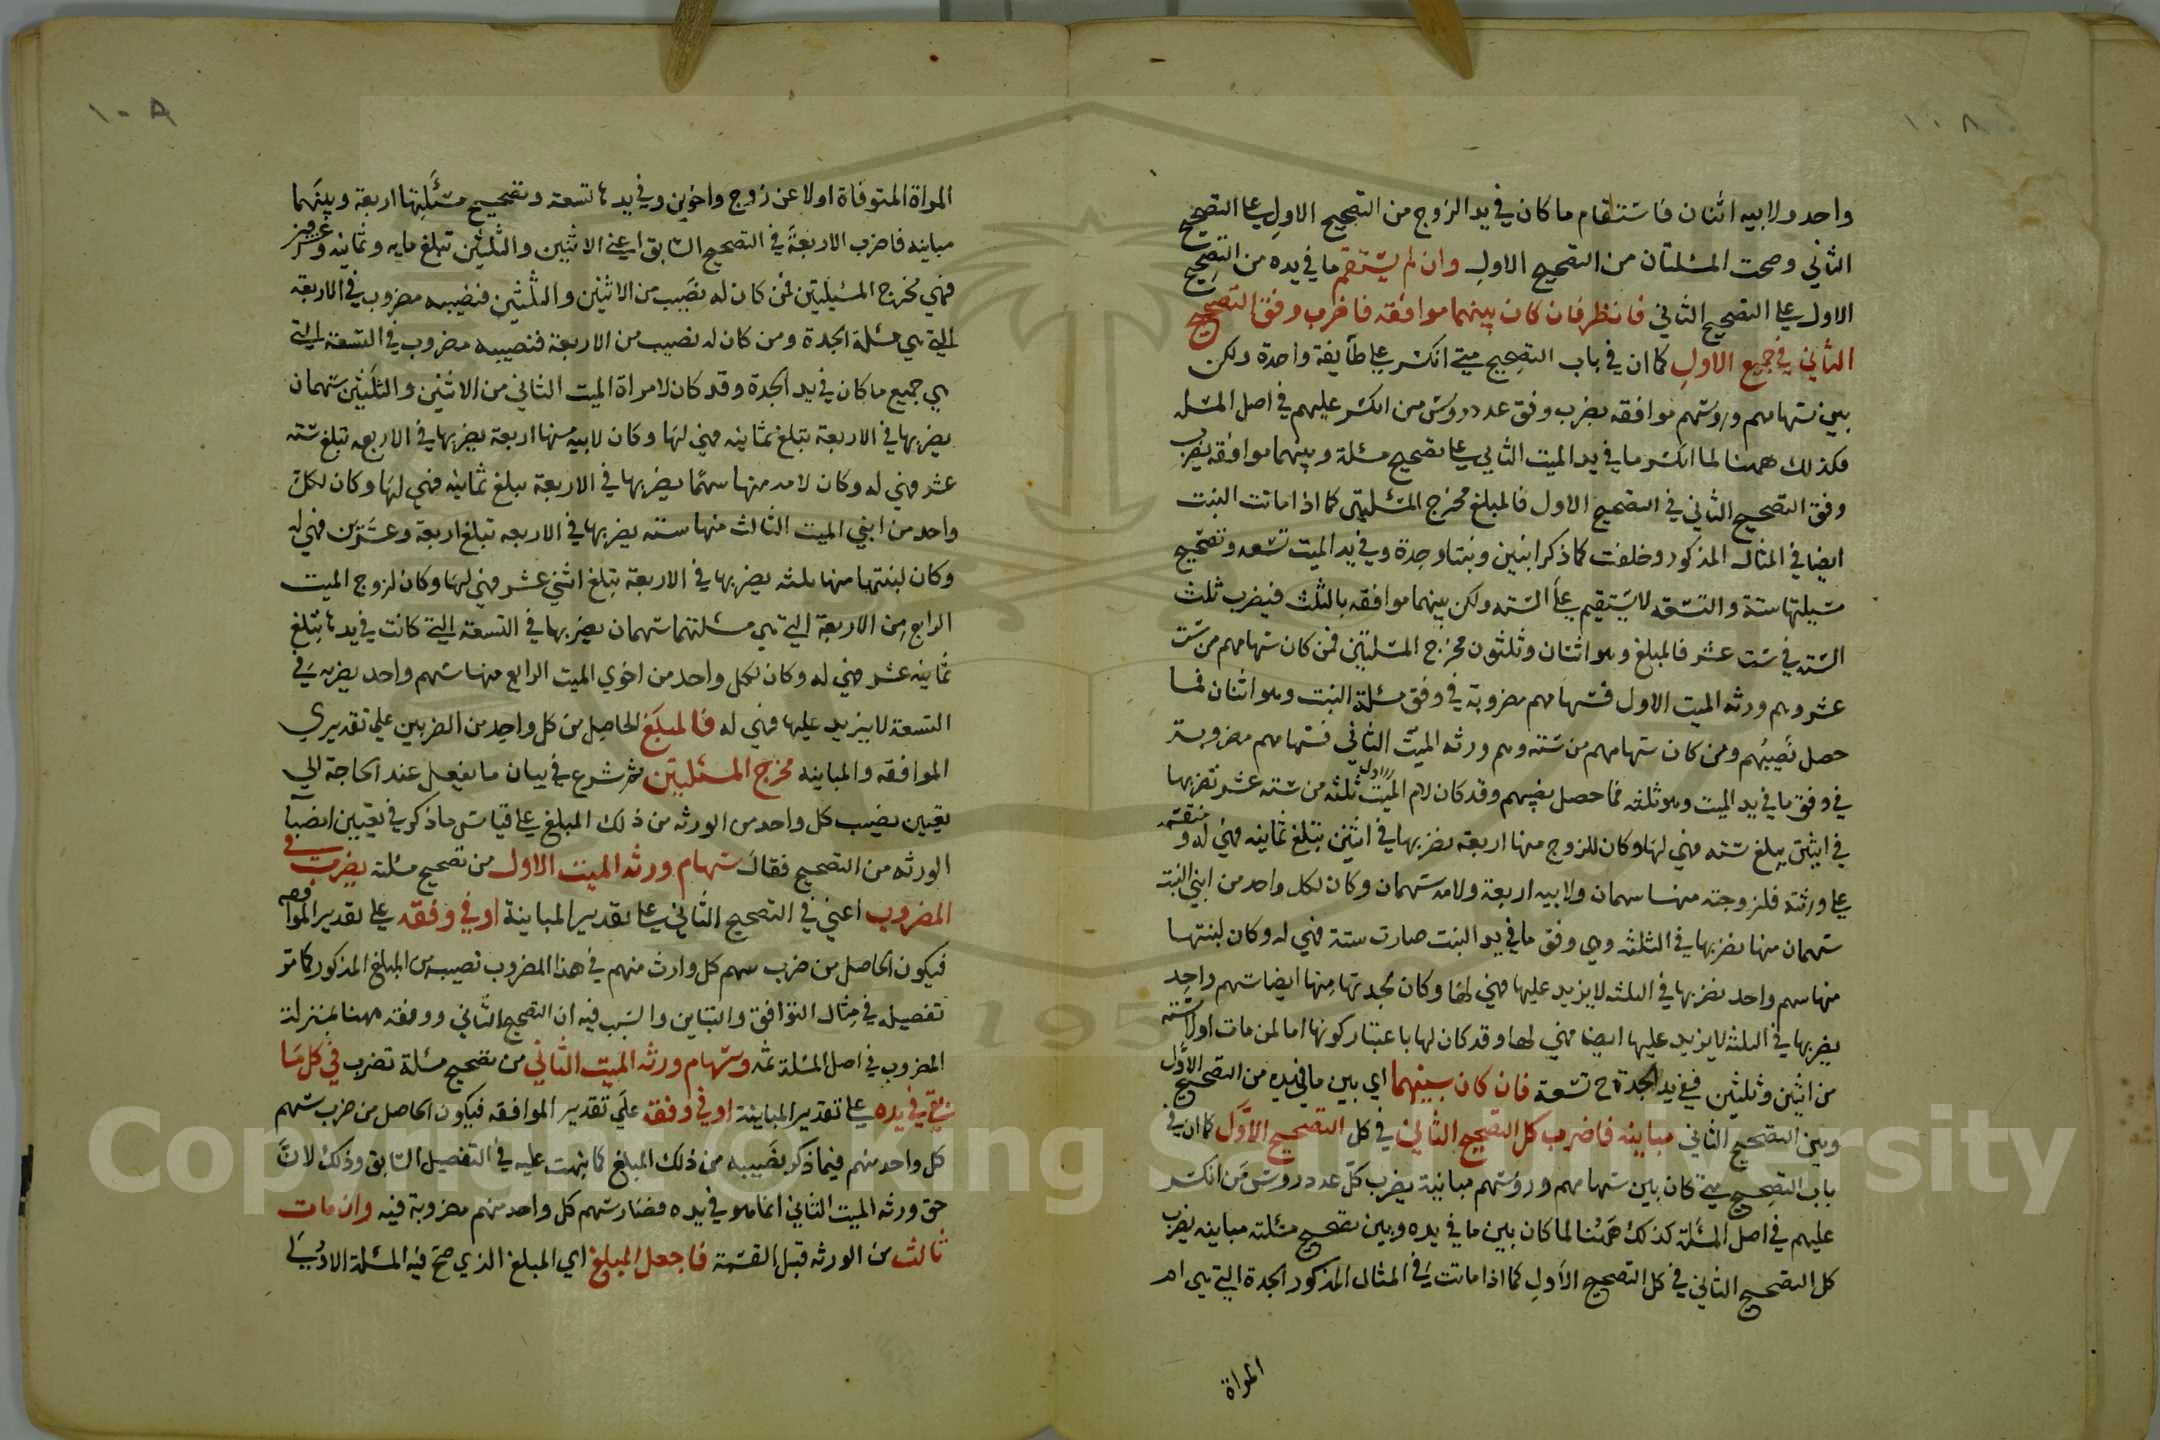 ١٠٨
واحد ولابيه اثنان فاستقام ما كان في يد الزوج من التصحيح الاول على التصحيح
الثاني وصحت المسئلتان من التصحيح الاول وان لم يستقم ما في يده من التصحيح
الاول على التصحيح الثاني فانظر فان كان بينهما موافقه فاضرب وفق التصحيح
الثاني في جميع الاول كما ان في باب التصحيح متى انكسر على طايفة واحدة ولكن
بين سهامهم وروسهم موافقه يضرب وفق عدد روس من انكسر عليهم في اصل المسئله
فكذلك ههنا لما انكسر ما في يد الميت الثاني على تصحيح مسئلة وبينهما موافقه يضرب
وفق التصحيح الثاني في التصحيح الاول فالمبلغ مخرج المسئلتين كما اذا ماتت البنت
ايضا في المثال المذكور وخلفت كما ذكر ابنين وبنتا وجدة وفي يد الميت تسعه وتصحيح
مسئلتها ستة والتسعه لا يستقيم على السته ولكن بينهما موافقه بالثلث فيضرب ثلث
السته في ست عشر فالمبلغ وهو اثنان وثلثون مخرج المسئلتين فمن كان سهامهم من ست
عشر وهم ورثه الميت الاول فسهامهم مضروبة في وفق مسئلة البنت وهو اثنان فما
حصل نصيبهم ومن كان سهامهم من سته وهم ورثه الميت الثاني فسهامهم مضروبة
في وفق ما في يد الميت وهو ثلثه فما حصل نصيبهم وقد كان لام الميت الاول ثلثه من سته عشر نضربها
في اثنين يبلغ سته فهي لها وكان للزوج منها اربعة نضربها في اثنين تبلغ ثمانيه فهي له و منقسمه
على ورثته فلزوجته منها سهمان ولابيه اربعة ولامه سهمان وكان لكل واحد من ابني البنت
سهمان منها نضربها في الثلثه وهي وفق ما في يد البنت صارت ستة فهي له وكان لبنتها
منها سهم واحد نضربها في الثلثه لا يزيد عليها فهي لها وكان لجدتها منها ايضا سهم واحد
يضربها في الثلثه لا يزيد عليها ايضا فهي لها وقد كان لها باعتبار كونها اما لمن مات اولا سته
من اثنين وثلثين ففي يد الجدة ح تسعة فان كان بينهما اي بين ما في يده من التصحيح الاول
وبين التصحيح الثاني مباينه فاضرب كل التصحيح الثاني في كل التصحيح الاول كما ان في
باب التصحيح متى كان بين سهامهم ورؤسهم مباينة يضرب كل عدد روس من انكسر
عليهم في اصل المسئلة كذلك ههنا لما كان بين ما في يده وبين تصحيح مسئلته مباينه يضرب
كل التصحيح الثاني في كل التصحيح الاول كما اذا ماتت في المثال المذكور الجدة التي هي ام
المراة
١٠٩
المراة المتوفاة اولا عن زوج واخوين وفي يدها تسعة وتصحيح مسئلتها اربعة وبينهما
مباينه فاضرب الاربعة في التصحيح السابق اعني الاثنين والثلثين تبلغ مايه وثمانيه وعشرين
فهي مخرج المسئلتين فمن كان له نصيب من الاثنين والثلثين فنصيبه مضروب في الاربعة
التي هي مسئلة الجدة ومن كان له نصيب من الاربعة فنصيبه مضروب في التسعة التي
هي جميع ما كان في يد الجدة وقد كان لامراة الميت الثاني من الاثنين والثلثين سهمان
يضربها في الاربعة تبلغ ثمانيه فهي لها وكان لابيه منها اربعة يضربها في الاربعه تبلغ سته
عشر فهي له وكان لامه منها سهما يضربها في الاربعة تبلغ ثمانيه فهي لها وكان لكل
واحد من ابني الميت الثالث منها سته يضربها في الاربعه تبلغ اربعة وعشرين فهي له
وكان لبنتها منها ثلثه يضربها في الاربعة تبلغ اثني عشر فهي لها وكان لزوج الميت
الرابع من الاربعة التي هي مسئلتهما سهمان يضربها في التسعة التي كانت في يدها تبلغ
ثمانيه عشر فهي له وكان لكل واحد من اخوي الميت الرابع منها سهم واحد يضربه في
التسعة لا يزيد عليها فهي له فالمبلغ الحاصل من كل واحد من الضربين على تقديري
الموافقه والمباينه مخرج المسئلتين ثم شرع في بيان ما يفعل عند الحاجة الى
تعيين نصيب كل واحد من الورثه من ذلك المبلغ على قياس ما ذكر في تعيين انصبا
الورثه من التصحيح فقال سهام ورثه الميت الاول من تصحيح مسئلته يضرب في
المضروب اعني في التصحيح الثاني على تقدير المباينة او في وفقه على تقدير الموافقه
فيكون الحاصل من ضرب سهم كل وارث منهم في هذا المضروب نصيبه من المبلغ المذكور كما مر
تفصيله في مثال التوافق والتباين والسبب فيه ان التصحيح الثاني ووفقه ههنا بمنزلة
المضروب في اصل المسئلة ثمه وسهام ورثه الميت الثاني من تصحيح مسئلة تضرب في كل ما
بقي في يده على تقدير المباينة او في وفقه على تقدير الموافقه فيكون الحاصل من ضرب سهم
كل واحد منهم فيما ذكر نصيبه من ذلك المبلغ كما نبهت عليه في التفصيل السابق وذلك لان
حق ورثه الميت الثاني انما هو في يده فصارت سهم كل واحد منهم مضروبة فيه وان مات
ثالث من الورثه قبل القسمة فاجعل المبلغ اي المبلغ الذي صح فيه المسئلة الاولى
Copyright © King Saud University
195